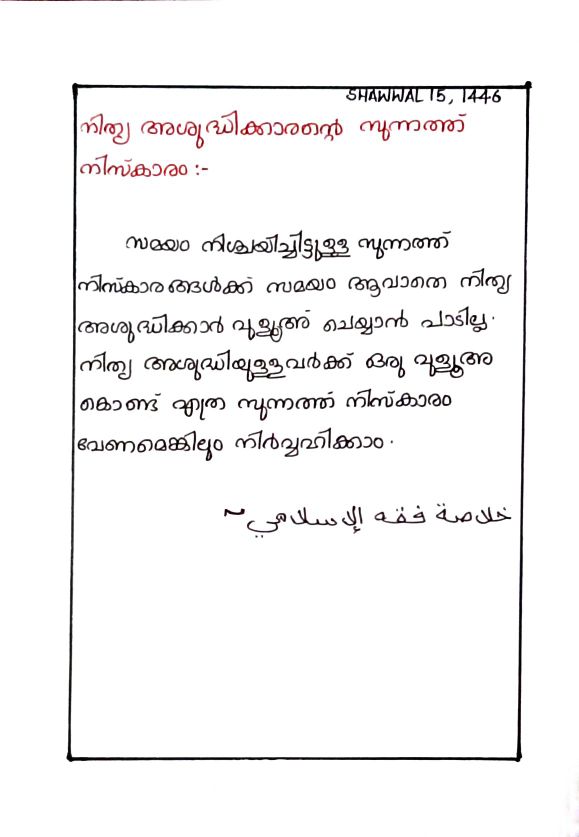 SHAWWAL 15, 1446
നിത്യ അശുദ്ധിക്കാരന്റെ സുന്നത്ത്
നിസ്കാരം :-
സമയം നിശ്ചയിച്ചിട്ടുള്ള സുന്നത്ത്
നിസ്കാരങ്ങൾക്ക് സമയം ആവാതെ നിത്യ
അശുദ്ധിക്കാർ വുളൂഅ് ചെയ്യാൻ പാടില്ല.
നിത്യ അശുദ്ധിയുള്ളവർക്ക് ഒരു വുളൂഅ
കൊണ്ട് എത്ര സുന്നത്ത് നിസ്കാരം
വേണമെങ്കിലും നിർവ്വഹിക്കാം.
خلاصة فقه الإسلامي ~